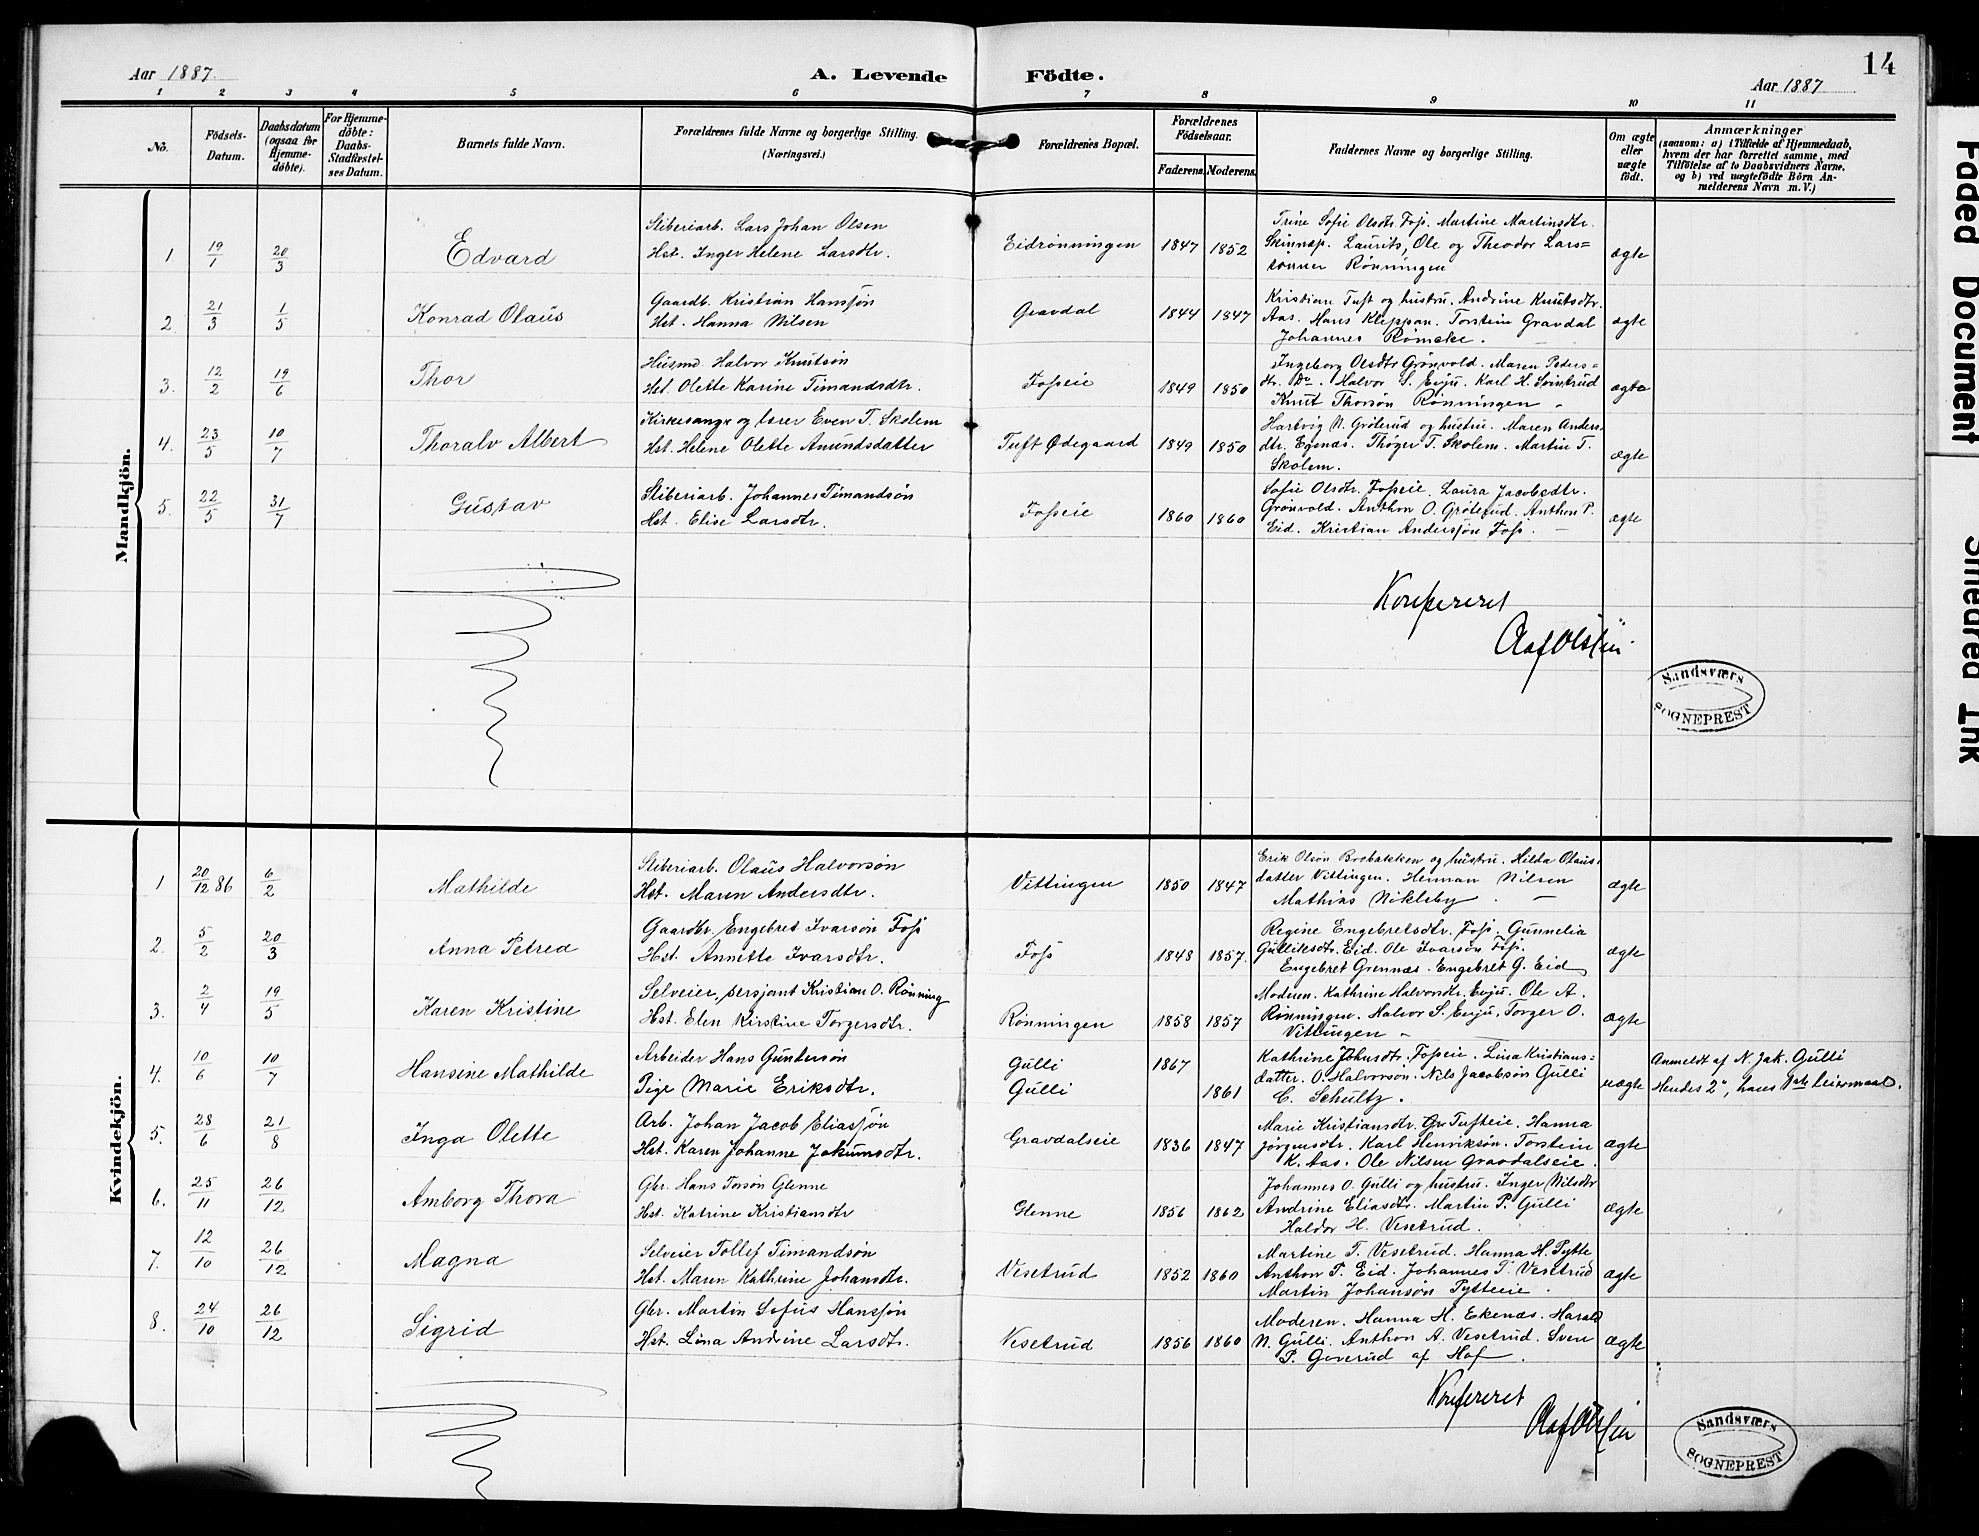 14
Aar 1887.
A. Levende Födte.
Aar 1887
1 2 3 4 5 6 7 8 9 10 11
No.
Födsels-Datum.
Daabsdatum (ogsaa for Hjemme-döbte).
For Hjemme-döbte: Daabs-Stadfæstel-ses Datum.
Barnets fulde Navn.
Forældrenes fulde Navne og borgerlige Stilling. (Næringsvei.)
Forældrenes Bopæl.
Forældrenes Födselsaar.
Faderens. Moderens.
Faddernes Navne og borgerlige Stilling.
Om ægte eller uægte födt.
Anmærkninger
(saasom: a) i Tilfælde af Hjemmedaab, hvem der har forrettet samme, med Tilföielse af to Daabsvidners Navne, og b) ved uægtefödte Börn An-melderens Navn m.V.)
Mandkjön.
1 19/1 20/3 Edvard
Sliberiarb. Lars Johan Olsen
Hst. Inger Helene Larsdtr.
Eidrönningen 1847 1852
Trine Sofie Olsdtr. Foss. Martine Martinsdtr.
Skinnæp. Laurits, Ole og Theodor Lars=
sönner Rönningen
ægte
2 21/3 1/5 Konrad Olaüs
Gaardb. Kristian Hanssön
Hst. Hanna Nilsen
Gravdal 1844 1847
Kristian Tuft og hustru. Andrine Knutsdtr.
Aas. Hans Kleppan. Torstein Gravdal
Johannes
ægte
3. 12/2 19/6 Thor
Hüsmd. Halvor Knutsön
Hst. Olette Karine Timandsdtr.
Fosseie 1849 1850
Ingeborg Olsdtr Grönvold. Maren Peders=
dtr. Do. Halvor S. Evju. Karl H. Svintrud
Knut Thorsön Rönningen
ægte
4. 23/5 10/7 Thoralv Albert
Kirkesanger og lærer Even T. Skolem
Hst. Helene Olette Amundsdatter
Tuft Ødegaard 1849 1850
Hartvig N. Gröterud og hustru. Maren Anders
dtr. Egenæs. Thöger T. Skolem. Martin T.
Skolem.
ægte
5. 22/5 31/7 Güstav
Sliberiarb. Johannes Timandsön
Hst. Elise Larsdtr.
Fosseie 1860 1860
Sofie Olsdtr. Fosseie. Laura Jacobsdtr.
Grönvold. Anthon O. Gröterud. Anthon P.
Eid. Kristian Anderssön Foss.
ægte
Konfereret
Sandsværs
SOGNEPREST
Kvindekjön.
1 20/12 86 6/2 Mathilde
Sliberiarb. Olaüs Halvorsön
Hst. Maren Andersdtr.
Vittingen 1850 1847
Erik Olsön Brobakken og hustru. Hilda Olaus=
datter Vittingen. Herman Nilsen
Mathias Nikleby
ægte
2. 5/2 20/3 Anna Petrea
Gaardbr. Engebret Ivarsön Foss
Hst. Annette Ivarsdtr.
Foss 1848 1857.
Regine Engebretsdtr. Foss. Gunnelia
Gülliksdtr. Eid. Ole Ivarsön Foss.
Engebret Grennæs. Engebret G. Eid
ægte
3. 2/4 19/5 Karen Kristine
Selveier, sersjant Kristian O. Rönning
Hst. Elen Kirstine Torgersdtr.
Rönningen 1858 1857
Moderen. Kathrine Halvorsdtr. Evju. Ole A.
Rönningen. Halvor S. Evju, Torger O.
Vittingen
ægte
4. 10/6 10/7 Hansine Mathilde
Arbeider Hans Güntersön
Pige Marie Eriksdtr.
Gülli 1867
Gülli 1861
Kathrine Johnsdtr. Fosseie. Lina Kristians=
datter. O. Halvorsön. Nils Jacobsön Gülli
C. Schültz.
uægte
Anmeldt af N. Jak. Gülli
Hendes 2det, hans 1ste leiermaal.
5. 28/6 21/8 Inga Olette
Arb. Johan Jacob Eliassön
Hst. Karen Johanne Jokumsdtr.
Gravdalseie 1836 1847
Marie Kristiansdtr. Gr. Tufteie. Hanna
Jörgensdtr. Karl Henriksön. Torstein
K. Aas. Ole Nilsen Gravdalseie.
ægte
6. 25/11 26/12 Amborg Thora
Gbr. Hans Torsön Glenne
Hst. Katrine Kristiansdtr
Glenne 1856 1862
Johannes O. Gülli og hustru. Inger Nilsdtr
Andrine Eliasdtr. Martin P. Gülli
Haldor H. Vesetrud.
ægte
7. 12/10 26/12 Magna
Selveier Tollef Timandsön
Hst. Maren Kathrine Johansdtr.
Vesetrud 1852 1860
Martine T. Vesetrud. Hanna H. Pytte
Anthon P. Eid. Johannes T. Vesetrud
Martin Johansön Pytteeie.
ægte
8. 24/10 26/12 Sigrid
Gbr. Martin Sofus Hanssön
Hst. Lina Andrine Larsdtr.
Vesetrud 1856 1860
Moderen. Hanna H. Ekenæs. Harald
N. Gülli. Anthon A. Vesetrud. Sven
P. Goverud af Hof.
ægte
Konfereret
Sandsværs
SOGNEPREST
Faded Document
Smeared Ink